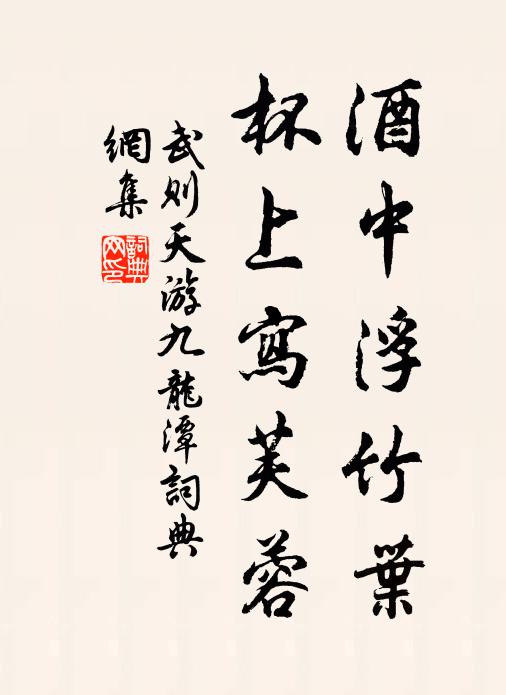 酒中浮竹葉
杯上寫芙蓉
武則天游九龍潭詞典
網集
詞典網印